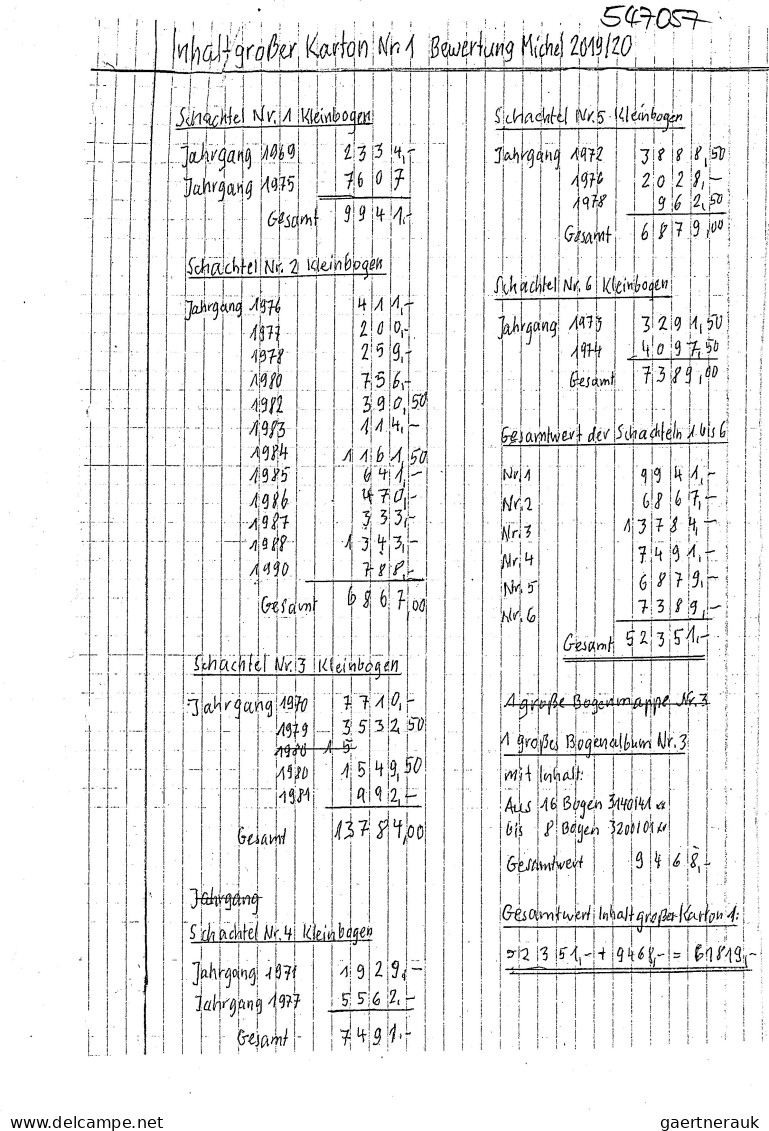 547057
Inhalt großer Karton Nr. 1 Bewertung Michel 2019/20
Schachtel Nr. 1 Kleinbogen
Jahrgang 1969 2334,-
Jahrgang 1975 7607
Gesamt 9941,-
Schachtel Nr. 2 Kleinbogen
Jahrgang 1976 411,-
1977 200,-
1978 259,-
1980 756,-
1982 390,50
1983 114,-
1984 1161,50
1985 641,-
1986 470,-
1987 333,-
1988 1343,-
1990 788,-
Gesamt 6867,00
Schachtel Nr. 3 Kleinbögen
Jahrgang 1970 7710,-
1979 3532,50
1980 15
1980 1549,50
1981 992,-
Gesamt 13784,00
Jahrgang
Schachtel Nr. 4 Kleinbogen
Jahrgang 1971 1929,-
Jahrgang 1977 5562,-
Gesamt 7491,-
Schachtel Nr. 5 Kleinbogen
Jahrgang 1972 3888,50
1976 2028,-
1978 962,50
Gesamt 6879,00
Schachtel Nr. 6 Kleinbogen
Jahrgang 1973 3291,50
1974 4097,50
Gesamt 7389,00
Gesamtwert der Schachteln 1 bis 6
Nr. 1 9941,-
Nr. 2 6867,-
Nr. 3 13784,-
Nr. 4 7491,-
Nr. 5 6879,-
Nr. 6 7389,-
Gesamt 52351,-
1 große Bogenmappe Nr. 3
1 großes Bogenalbum Nr. 3
mit Inhalt:
Aus 16 Bogen 3140/41
bis 8 Bögen 3200/01
Gesamtwert 9468,-
Gesamtwert Inhalt großer Karton 1:
52351,- + 9468,- = 61819,-
www.delcampe.net
gaertnerauk